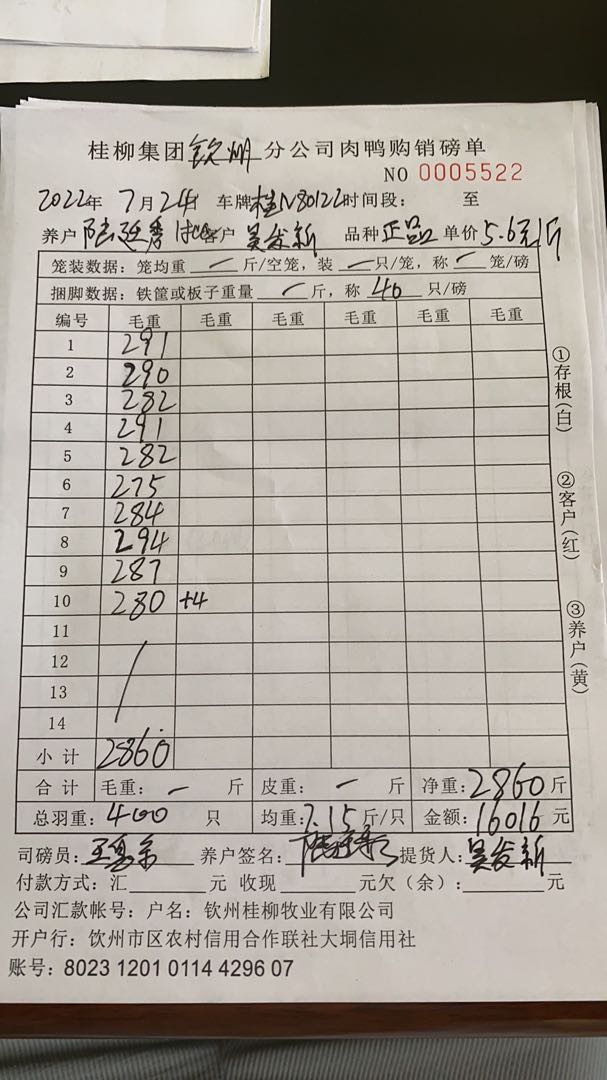 桂柳集团钦州分公司肉鸭购销磅单
NO 0005522
2022年 7月24 车牌桂N80122时间段: 至
养户 客户 吴发新 品种 正品 单价 5.6元/斤
笼装数据: 笼均重 一 斤/空笼, 装 一 只/笼, 称 一 笼/磅
捆脚数据: 铁筐或板子重量 一 斤, 称 40 只/磅
编号 毛重 毛重 毛重 毛重 毛重 毛重
1 291
2 290
3 282
4 291
5 282
6 275
7 284
8 294
9 287
10 280 +4
11
12
13
14
小计 2860
合计 毛重: 一 斤 皮重: 一 斤 净重: 2860 斤
总羽重: 400 只 均重: 7.15 斤/只 金额: 16016 元
司磅员: 养户签名: 提货人: 吴发新
付款方式: 汇 元 收现 元欠(余): 元
公司汇款帐号: 户名: 钦州桂柳牧业有限公司
开户行: 饮州市区农村信用合作联社大垌信用社
账号: 8023 1201 0114 4296 07
①存根(白)
②客户(红)
③养户(黄)